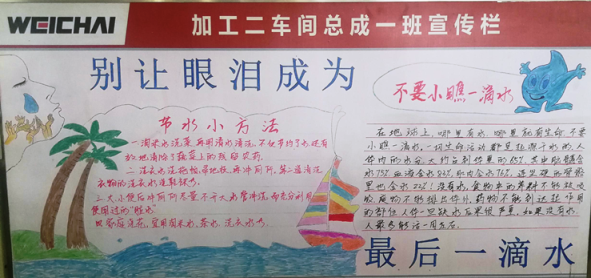 WEICHAI
加工二车间总成一班宣传栏
别让眼泪成为
节水小方法
一、淘米水洗菜 再用清水清洗,不仅节约了水还有
效地清除了蔬菜上的残留农药。
二、洗衣水洗拖帕、帚地板、再冲厕所。第二道清洗
衣物的洗衣水
三、大、小便后冲厕所,尽量不开大水管冲洗,而充分利用
使用过的"脏水"
四、家庭浇花,宜用淘米水、茶水、洗衣水等
不要小瞧一滴水
在地球上,哪里有水,哪里就有生命。不要
小瞧一滴水,一切生命活动都是起源于水的。人
体内的水分,大约占到体重的65%。其中脑髓含
水75%,血液含水83%,肌肉含水76%,连坚硬的骨骼
里也含水22%!没有水,食物中的养料不能被吸
收,废物不能排出体外,药物不能到达起作用
的部位。人体一旦缺水,后果很严重。如果没有水,
人最多能活一周左右。
最后一滴水